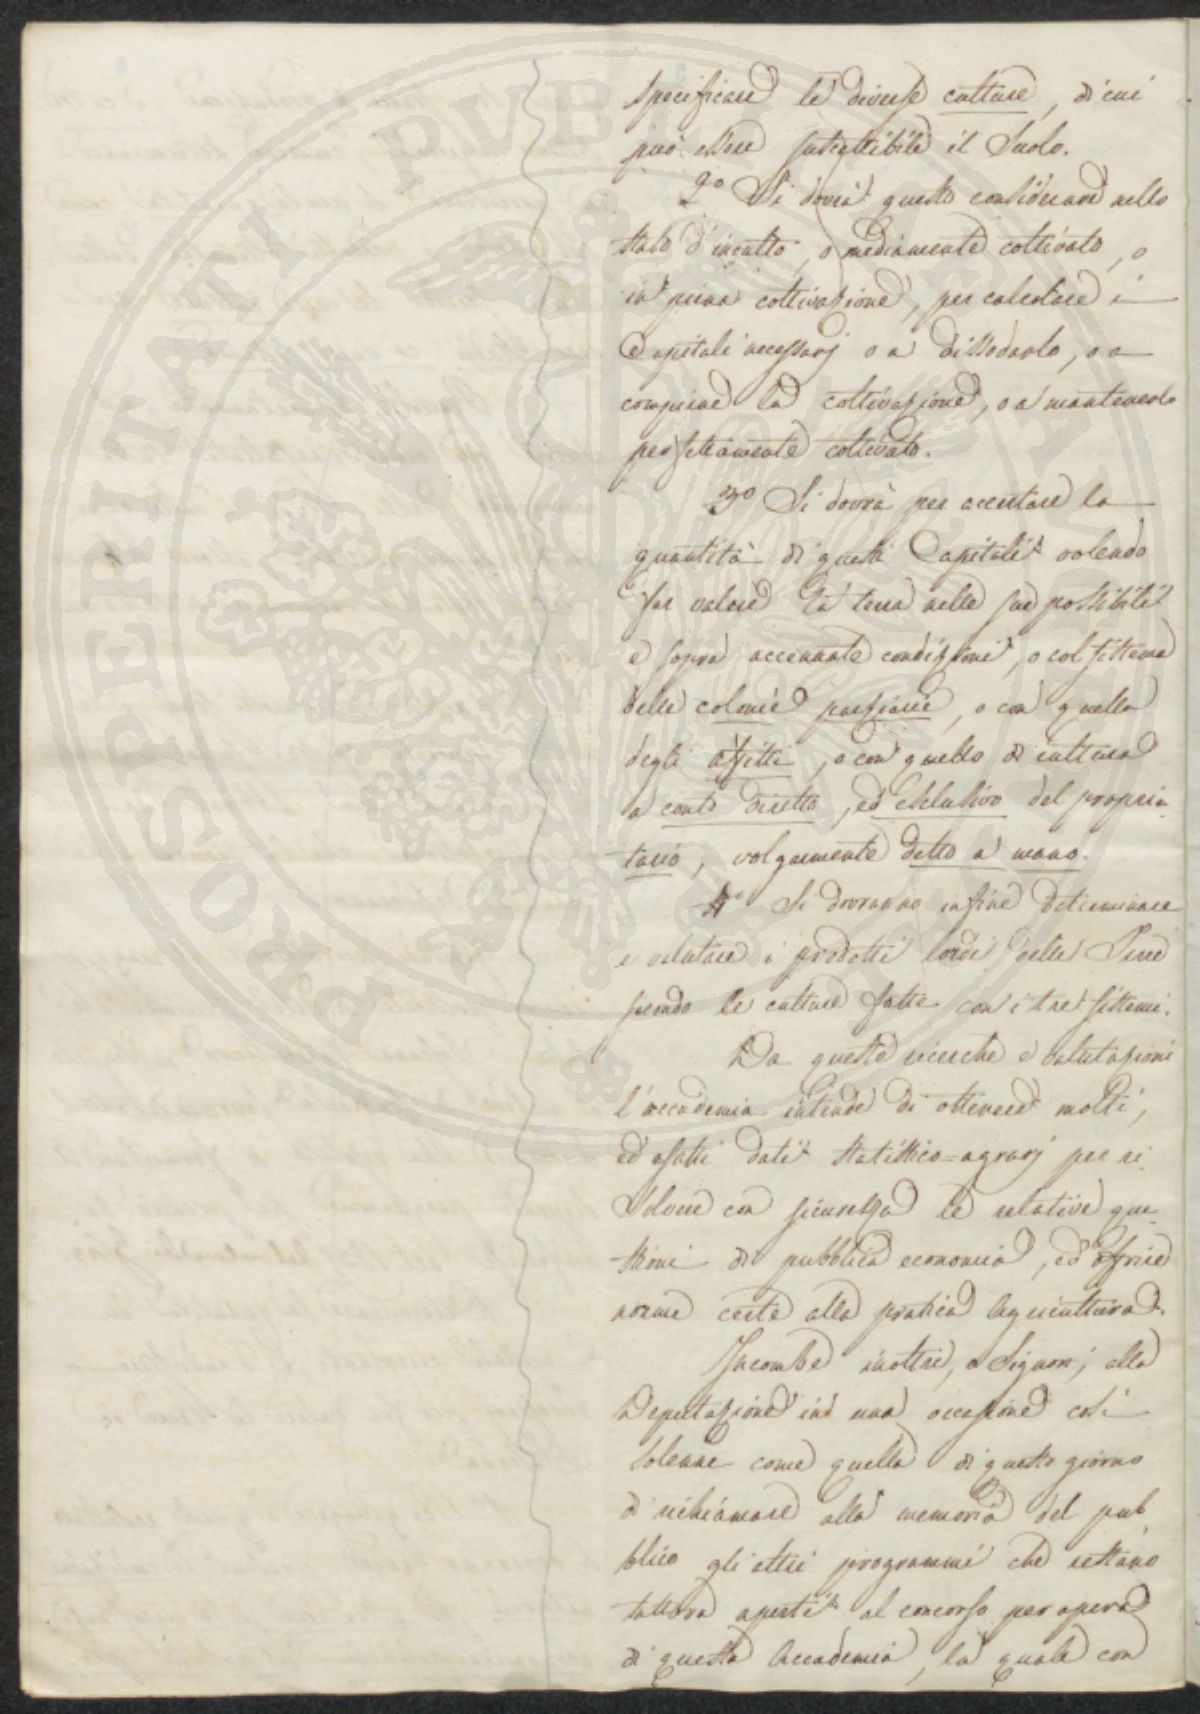 specificare le diverse culture, di cui
può essere suscettibile il Suolo.
2º Si dovrà questo considerare nello
stato d'incolto, o mediamente coltivato, o
in piena coltivazione, per calcolare i
Capitali necessarj o a dissodarlo, o a
compirne la coltivazione, o a mantenerlo
perfettamente coltivato.
3º Si dovrà per accertare la
quantità di questi Capitali volendo
far valere la terra nelle sue possibili
e sopra accennate condizioni, o col sistema
delle colonie parziarie, o con quello
degli affitti, o con quello di cultura
a conto diretto, ed esclusivo del proprie-
tario, volgarmente detto a mano.
4º Si dovranno infine determinare
e valutare i prodotti lordi delle Terre
secondo le culture fatte con i tre sistemi.
Da queste ricerche e valutazioni
l'accademia intende di ottenere molti,
ed esatti dati statistico=agrarj per ri
solvere con sicurezza le relative que-
stioni di pubblica economia, ed offrire
norme certe alla pratica Agricoltura.
Incombe inoltre, o Signori, alla
Deputazione in una occasione così
solenne come quella di questo giorno
di richiamare alla memoria del pub
blico gli altri programmi che restano
tuttora aperti al concorso per opera
di questa Accademia, la quale con
PROSPERITATI PUBLICAE